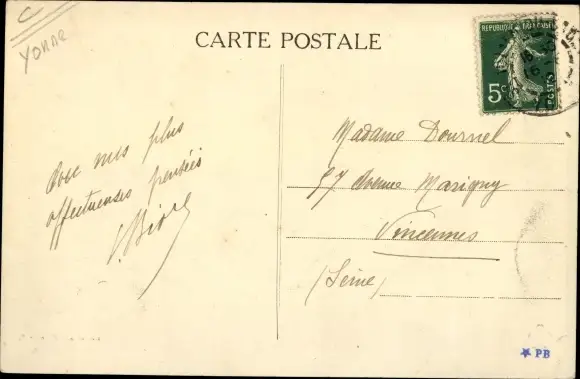 C
YONNE
CARTE POSTALE
REPUBLIQUE FRANÇAISE
5c
POSTES
Avec mes plus
affectueuses pensées
Madame Dournel
57 Avenue Marigny
Vincennes
(Seine)
★ PB